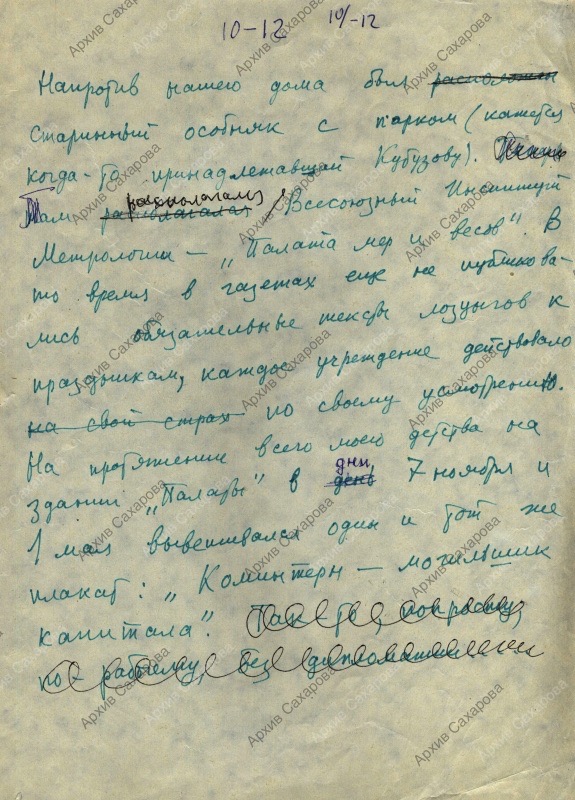 10-12 10/-12
Напротив нашего дома был расположен
старинный особняк с парком (кажется
когда-то принадлежавший Кубузову).
располагался
Там располагался Всесоюзный Институт
Метрологии – „Палата мер и весов". В
то время в газетах еще не публикова-
лись обязательные тексты лозунгов к
праздникам, каждое учреждение действовало
на свой страх по своему усмотрению.
На протяжение всего моего детства на
дни
здании „Палаты" в день 7 ноября и
1 мая вывешивался один и тот же
плакат: „Коминтерн – могильщик
капитала". Так-то, попросту,
по рабочему, без дипломатии
Архив Сахарова